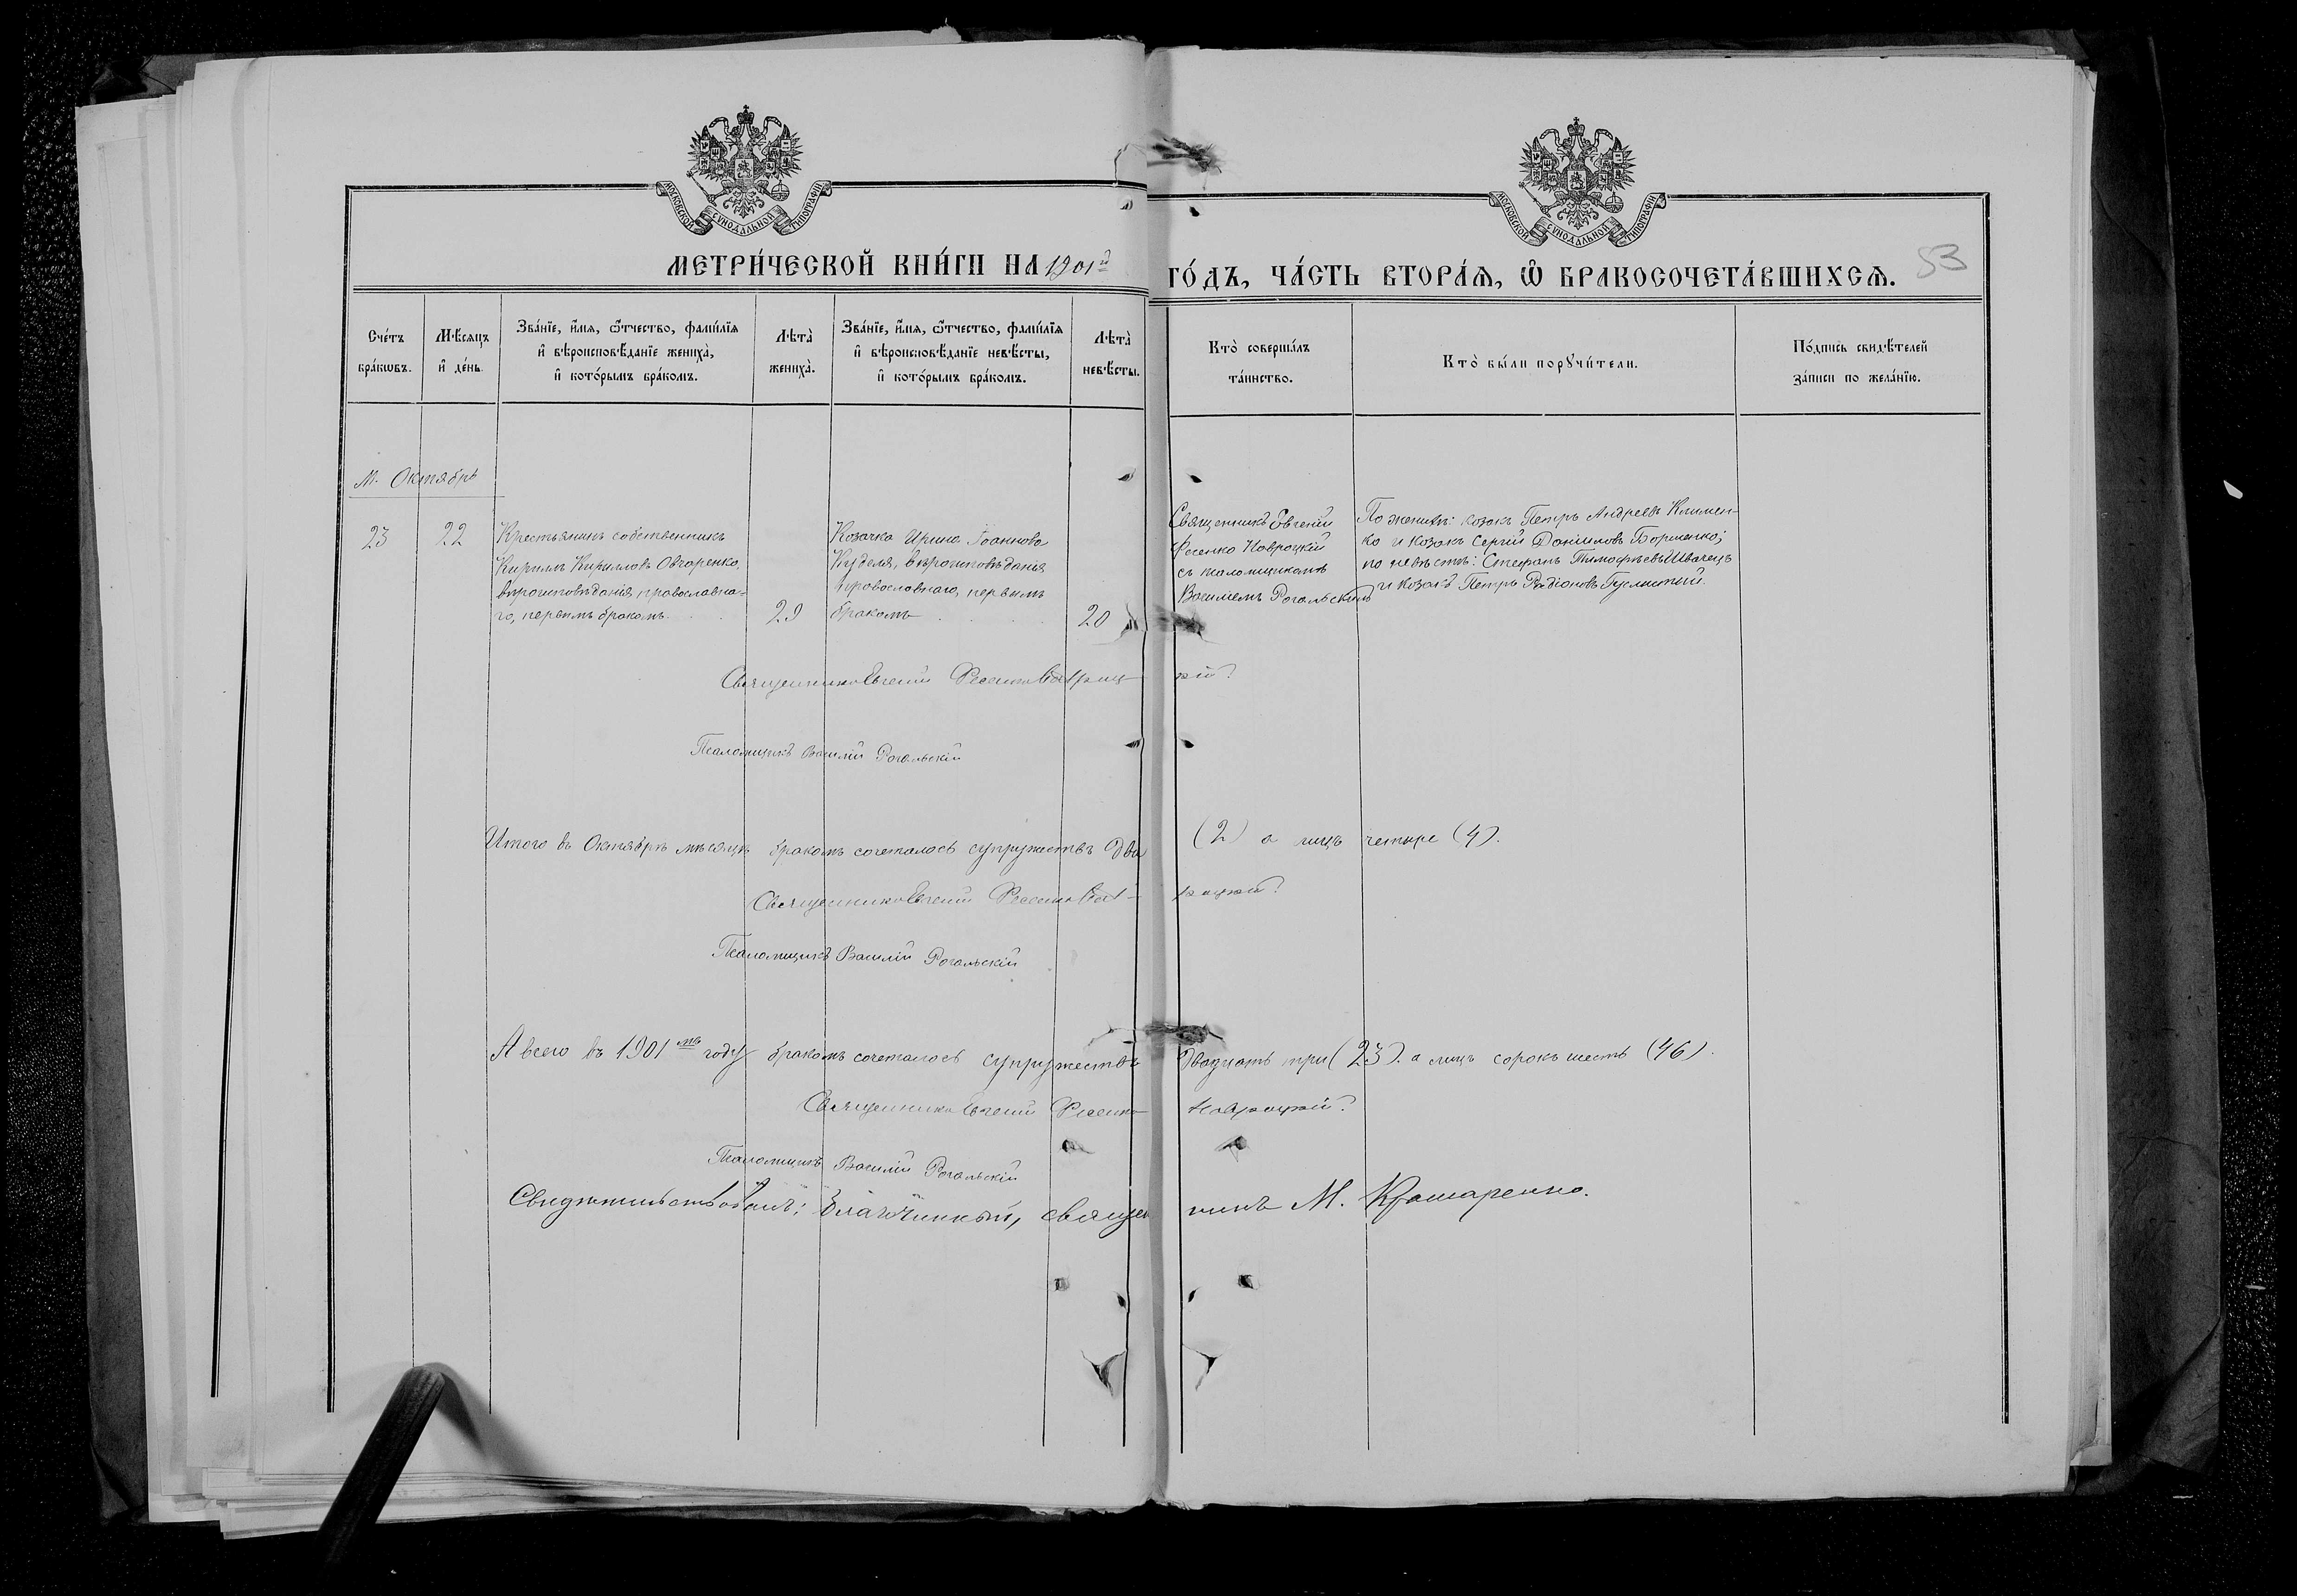 МОСКОВСКОЙ СѴНОДАЛЬНОЙ ТИПОГРАФІИ
МОСКОВСКОЙ СѴНОДАЛЬНОЙ ТИПОГРАФІИ
МЕТРИ́ЧЕСКОЙ КНИ́ГИ НА 1901й ГО́ДЪ, ЧА́СТЬ ВТОРА́Я, Ѽ БРАКОСОЧЕТА́ВШИХСѦ.
53
Сче́тъ
бра́кѡвъ.
Мѣ́сѧцъ
и҆ де́нь.
Зва́нїе, и҆́мѧ, ѻ҆́тчество, фами́лїѧ
и҆ вѣроисповѣ́данїе жениха̀,
и҆ кото́рымъ бра́комъ.
Лѣта̀
жениха̀.
Зва́нїе, и҆́мѧ, ѻ҆́тчество, фами́лїѧ
и҆ вѣроисповѣ́данїе невѣ́сты,
и҆ кото́рымъ бра́комъ.
Лѣта̀
невѣ́сты.
Кто̀ соверша́лъ
та́инство.
Кто̀ бы́ли порꙋчи́тели.
По́дпись свидѣ́телей
за́писи по жела́нїю.
М. Октябрь
23
22
Крестьянинъ собственникъ
Кириллъ Кирилловъ Овчаренко,
вѣроисповѣданія православна-
го, первымъ бракомъ
29
Козачка Ирина Іоаннова
Куделя, вѣроисповѣданія
православнаго, первымъ
бракомъ
20
Священникъ Евгеній
Фесенко Навроцкій
съ псаломщикомъ
Василіемъ Рогальскимъ
По женихѣ: козакъ Петръ Андреевъ Климен-
ко и козакъ Сергій Даніиловъ Борменко;
по невѣстѣ: Стефанъ Тимофѣевъ Швачецъ
и козакъ Петръ Радіоновъ Гуслистый.
Священникъ Евгеній Фесенко Навроцкій
Псаломщикъ Василій Рогальскій
Итого въ Октябрѣ мѣсяцѣ бракомъ сочеталось супружествъ два (2) а лицъ четыре (4).
Священникъ Евгеній Фесенко Навроцкій
Псаломщикъ Василій Рогальскій
А всего въ 1901мъ году бракомъ сочеталось супружествъ двадцать три (23) а лицъ сорокъ шесть (46).
Священникъ Евгеній Фесенко Навроцкій
Псаломщикъ Василій Рогальскій
Свидѣтельствовалъ: Благочинный, священникъ М. Крамаренко.